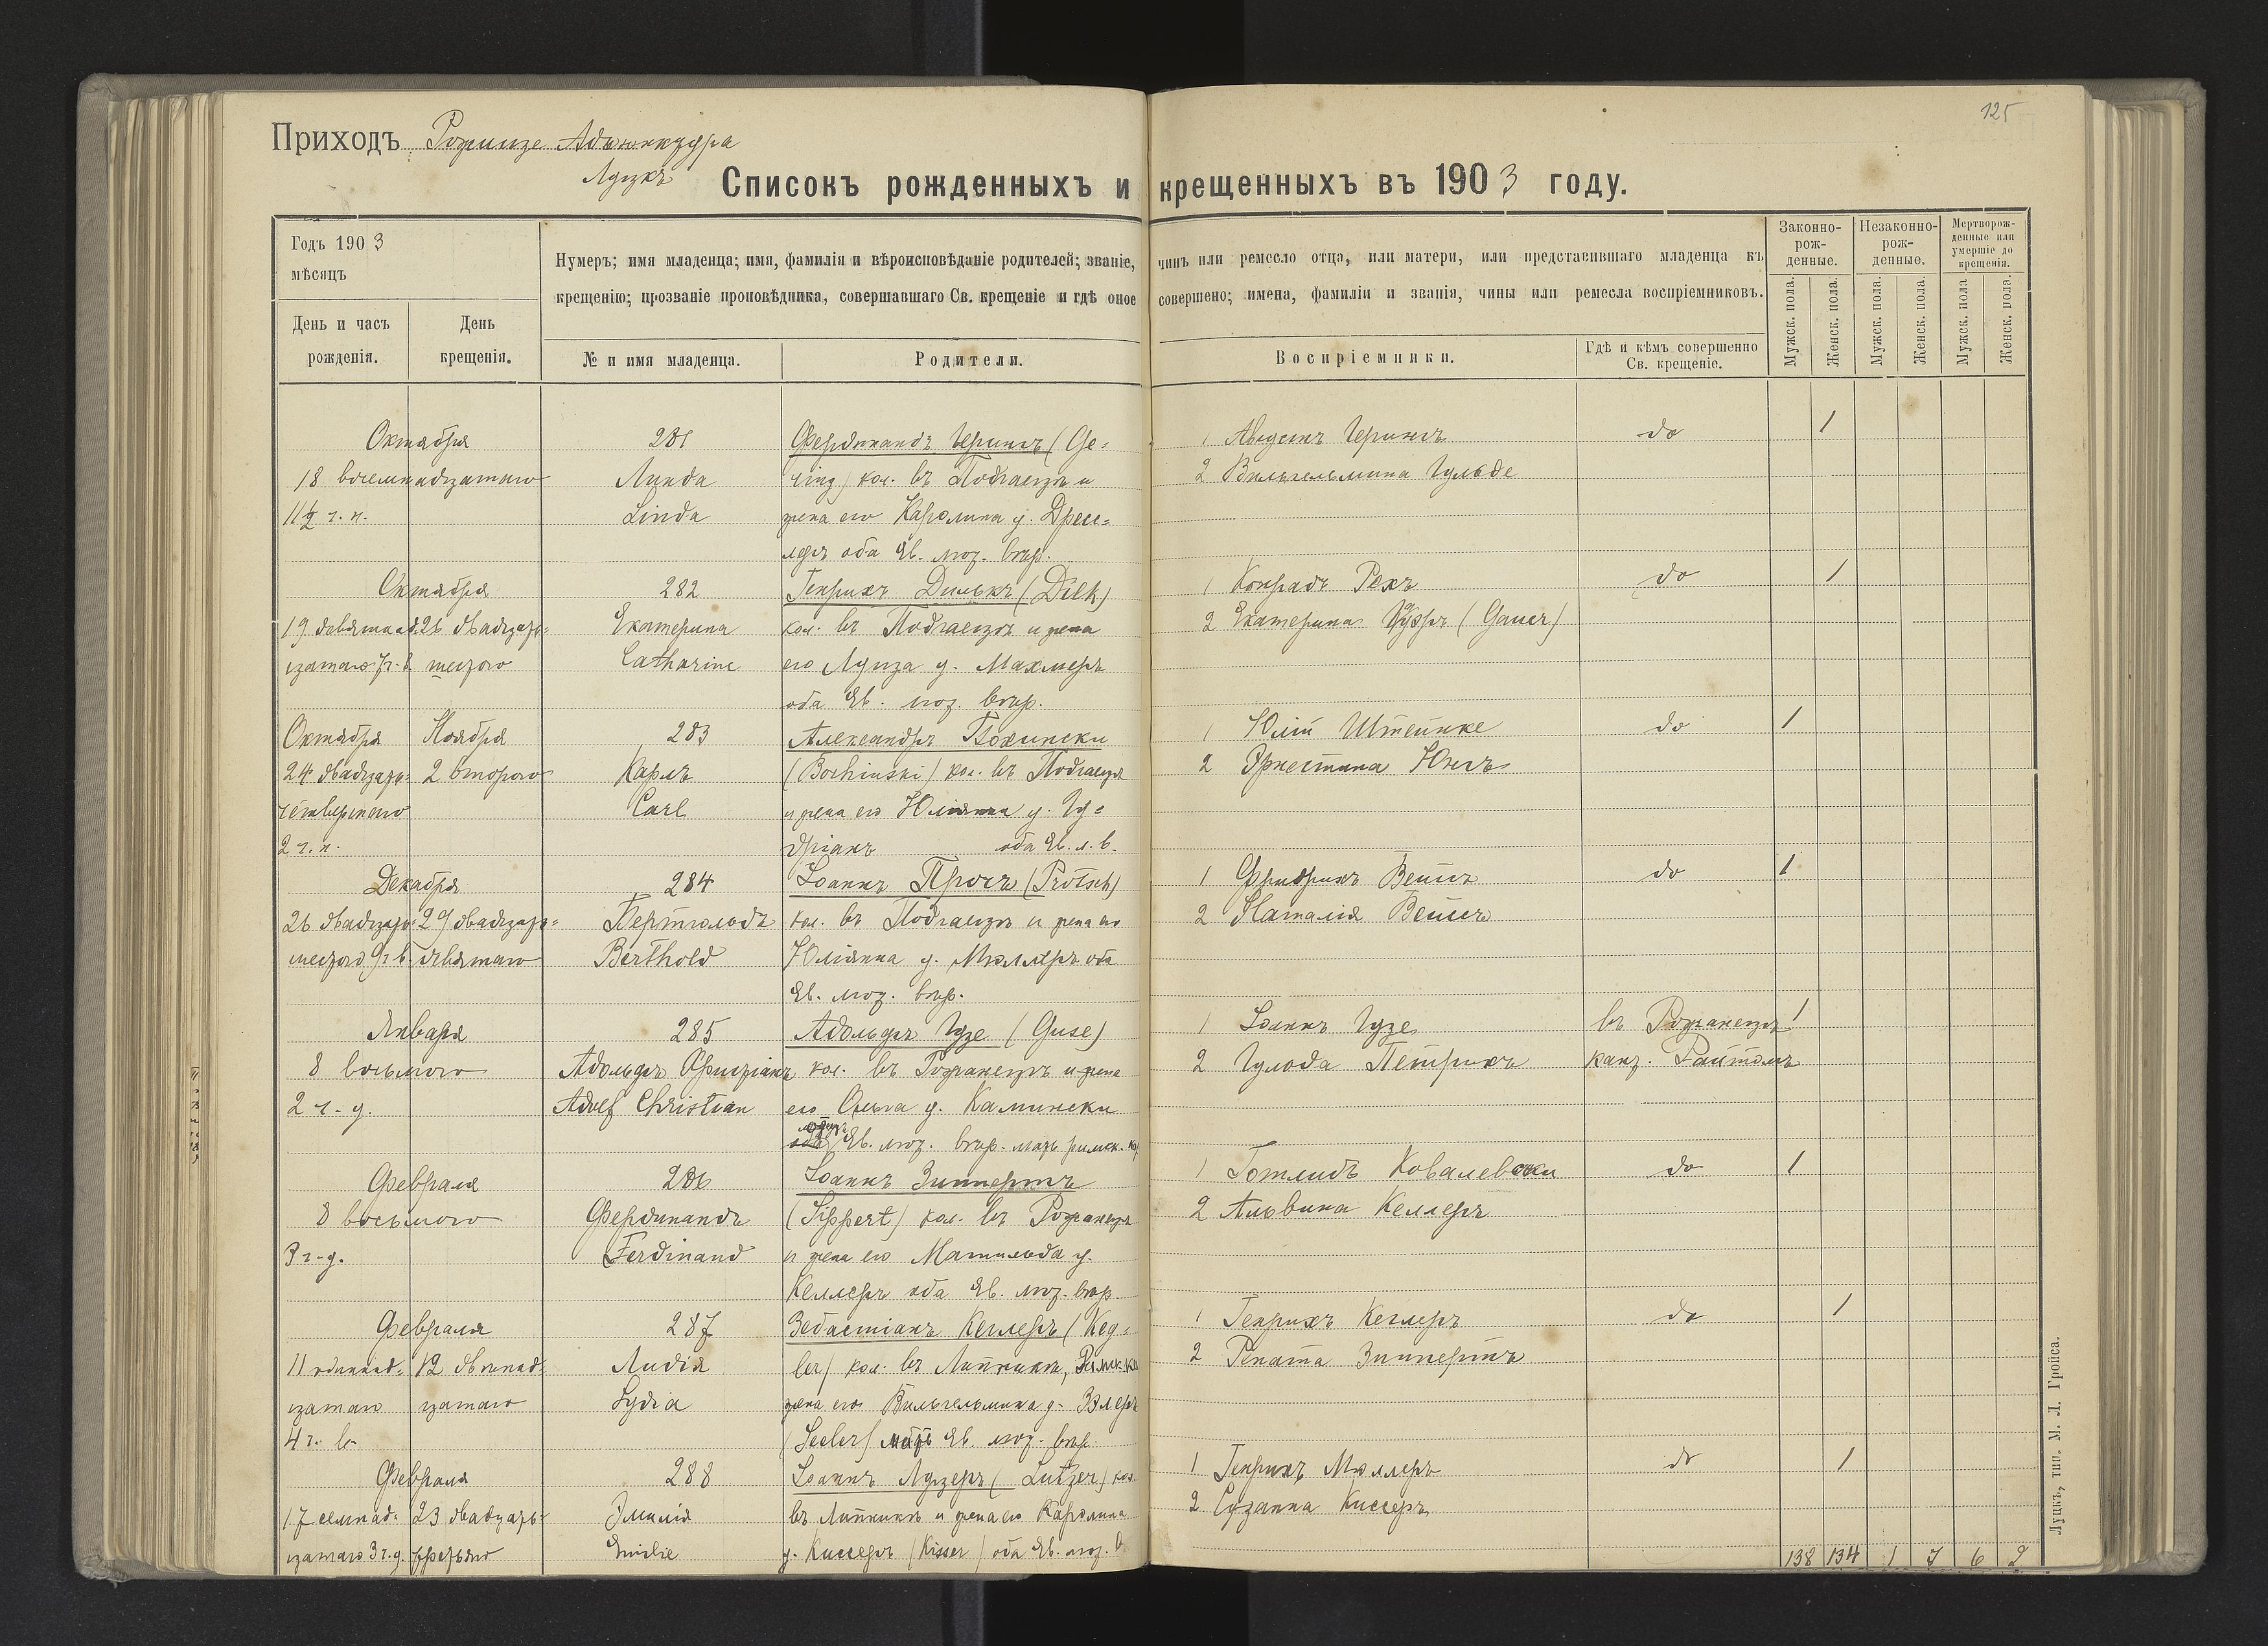 125
Приходъ Рожище Адъюнктура
Луцкъ
Списокъ рожденныхъ и крещенныхъ въ 1903 году.
Годъ 1903
мѣсяцъ
День и часъ рожденія.
День крещенія.
Нумеръ; имя младенца; имя, фамилія и вѣроисповѣданіе родителей; званіе, чинъ или ремесло отца, или матери, или представившаго младенца къ
крещенію; прозваніе проповѣдника, совершавшаго Св. крещеніе и гдѣ оное совершено; имена, фамиліи и званія, чины или ремесла воспріемниковъ.
№ и имя младенца.
Родители.
Воспріемники.
Гдѣ и кѣмъ совершенно
Св. крещеніе.
Законно-
рож-
денные.
Незаконно-
рож-
денные.
Мертворож-
денные или
умершіе до
крещенія.
Мужск. пола.
Женск. пола.
Мужск. пола.
Женск. пола.
Мужск. пола
Женск. пола.
Октября
18 восемнадцатаго
11½ ч. н.
281
Линда
Linda
Фердинандъ Герингъ (Ge-
ring) кол. въ Подгаецъ и
жена его Каролина у. Дрец-
леръ оба Ев. лют. вѣр.
1 Августъ Герингъ
2 Вильгельмина Гульде
до
1
Октября
19 девятнад-
цатаго 7 ч. в.
26 двадцать-
шестого
282
Екатерина
Catharine
Генрихъ Дилькъ (Dilk)
кол. въ Подгаецъ и жена
его Луиза у. Махмеръ
оба Ев. лют. вѣр.
1 Конрадъ Рехъ
2 Екатерина Гауэръ (Gauer)
до
1
Октября
24 двадцать-
четвертаго
2 ч. н.
Ноября
2 второго
283
Карлъ
Carl
Александръ Бохински
(Bochinski) кол. въ Подгаецъ
и жена его Юлiанна у. Гу-
дріанъ оба Ев. л. в.
1 Юлій Штейнке
2 Эрнестина Юнгъ
до
1
Декабря
26 двадцать-
шестого 9 ч. в.
29 двадцать-
девятаго
284
Бертгольдъ
Berthold
Іоаннъ Прочъ (Protsch)
кол. въ Подгаецъ и жена его
Юлiанна у. Мюллеръ оба
Ев. лют. вѣр.
1 Фридрихъ Вейсъ
2 Наталія Вейсъ
до
1
Января
8 восьмого
2 ч. у.
285
Адольфъ Христіанъ
Adolf Christian
Адольфъ Гузе (Guse)
кол. въ Рожанецъ и жена
его Ольга у. Камински
Ев. лют. вѣр. мать римск. к.
1 Іоаннъ Гузе
2 Гулода Петрихъ
въ Рожанецъ
кант. Райтомъ
1
Февраля
8 восьмого
3 ч. у.
286
Фердинандъ
Ferdinand
Іоаннъ Зиппертъ
(Sippert) кол. въ Рожанецъ
и жена его Матильда у.
Келлеръ оба Ев. лют. вѣр.
1 Готлибъ Ковалевски
2 Альвина Келлеръ
до
1
Февраля
11 одиннад-
цатаго
4 ч. в.
12 двѣнад-
цатаго
287
Лидія
Lydia
Зебастіанъ Кеглеръ (Keg-
ler) кол. въ Липникъ, Римск. ка
жена его Вильгельмина у. Зэлеръ
(Seeler) мать Ев. лют. вѣр.
1 Генрихъ Кеглеръ
2 Рената Зиппертъ
до
1
Февраля
17 семнад-
цатаго 3 ч. у.
23 двадцать-
третьяго
288
Эмилія
Emilie
Іоаннъ Луцеръ (Lutzer) кол.
въ Липникъ и жена его Каролина
у. Киссеръ (Kisser) оба Ев. лют. в.
1 Генрихъ Мюллеръ
2 Сузанна Киссеръ
до
1
138 134 1 7 6 2
Луцкъ, тип. М. Л. Гройса.